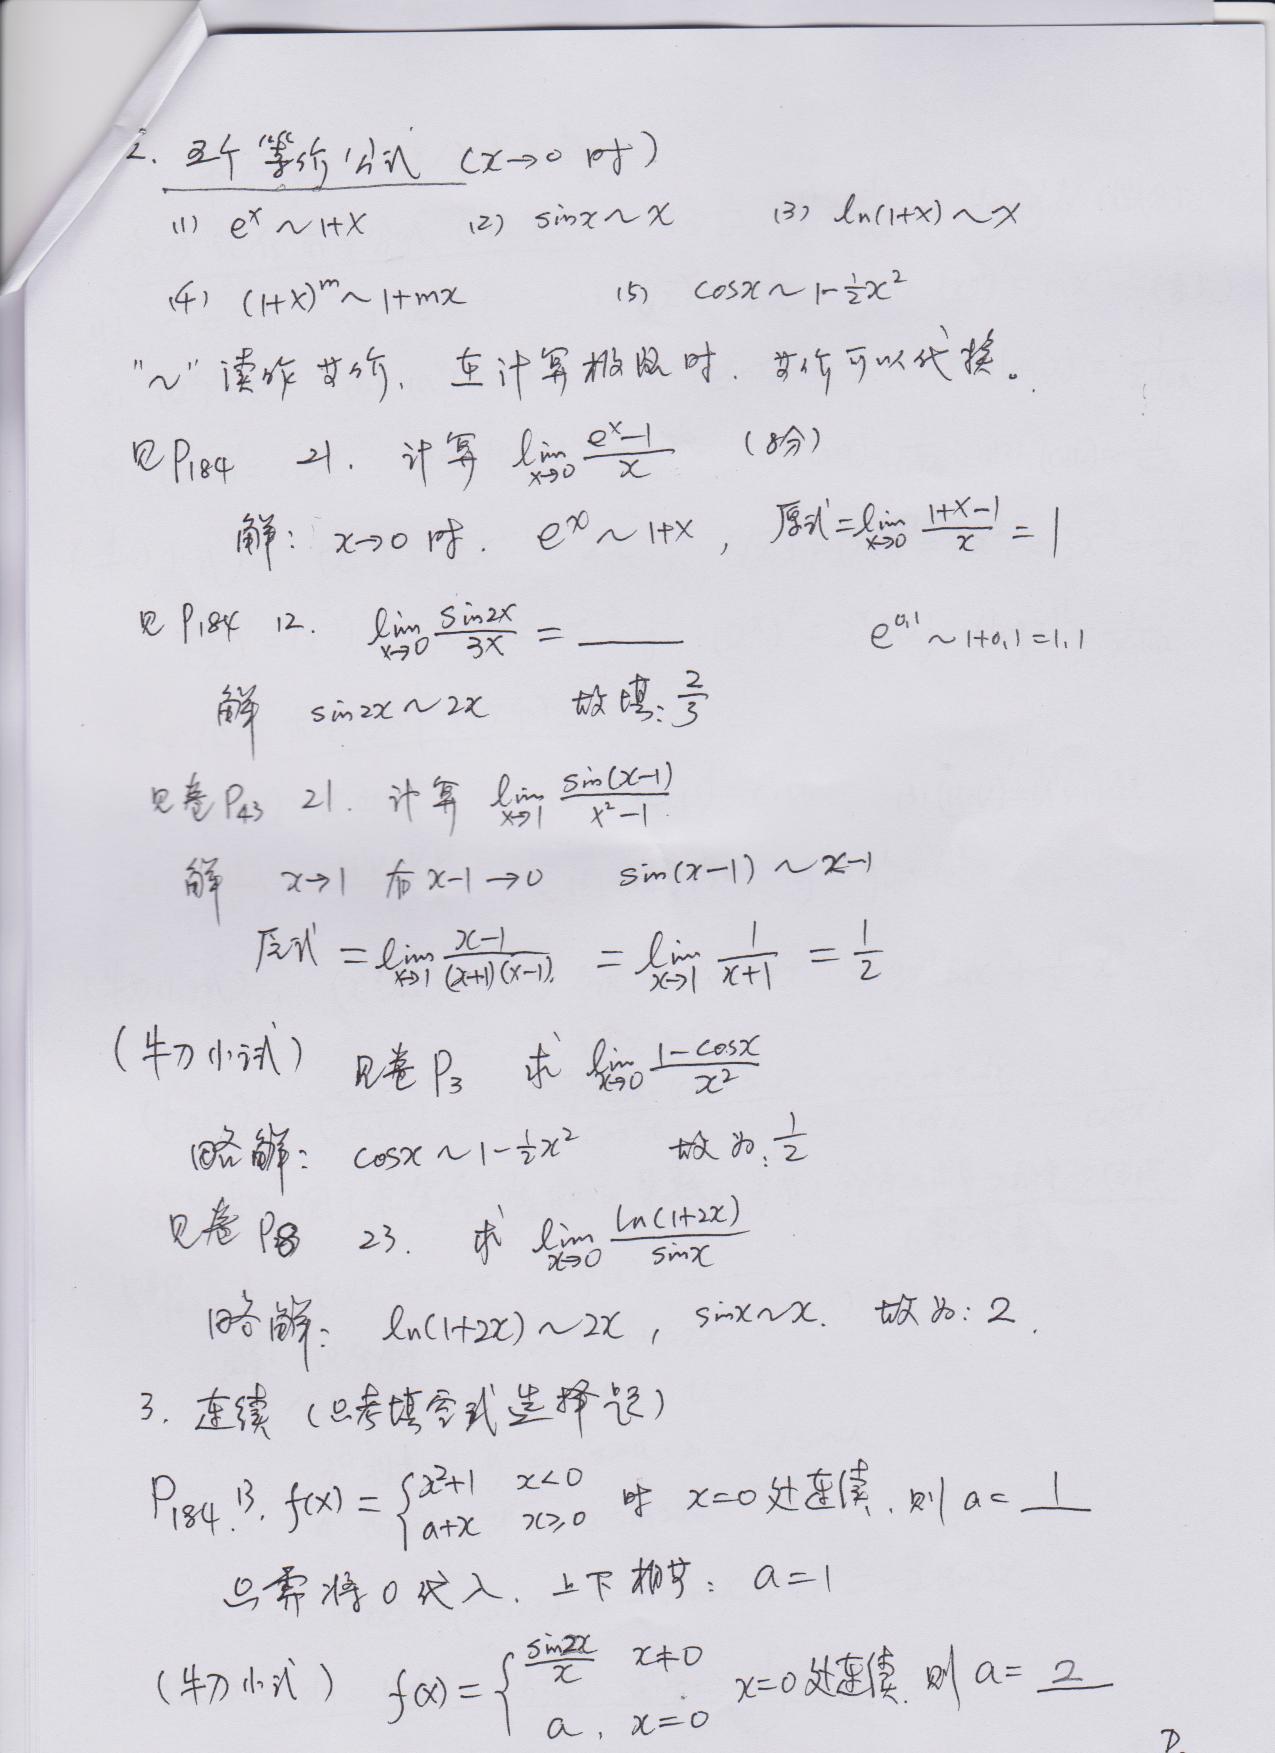 2. 五个等价公式 (x→0 时)
(1) e^x ~ 1+x (2) sinx ~ x (3) ln(1+x) ~ x
(4) (1+x)^m ~ 1+mx (5) cosx ~ 1-½x²
"~" 读作等价. 在计算极限时. 等价可以代换。
见P184 21. 计算 lim_{x→0} (e^x-1)/x (8分)
解: x→0 时. e^x ~ 1+x, 原式=lim_{x→0} (1+x-1)/x = 1
见P184 12. lim_{x→0} sin2x/3x = ____ e^0.1 ~ 1+0.1=1.1
解 sin2x ~ 2x 故填: 2/3
见卷P43 21. 计算 lim_{x→1} sin(x-1)/(x²-1)
解 x→1 有 x-1→0 sin(x-1) ~ x-1
原式 = lim_{x→1} (x-1)/((x+1)(x-1)). = lim_{x→1} 1/(x+1) = 1/2
(牛刀小试) 见卷P3 求 lim_{x→0} (1-cosx)/x²
略解: cosx ~ 1-½x² 故为: 1/2
见卷P8 23. 求 lim_{x→0} ln(1+2x)/sinx
略解: ln(1+2x) ~ 2x, sinx ~ x. 故为: 2.
3. 连续 (只考填空或选择题)
P184. 13. f(x) = { x²+1 x<0 ; a+x x≥0 时 x=0处连续. 则 a= 1
只需将0代入. 上下相等: a=1
(牛刀小试) f(x) = { sin2x/x x≠0 ; a, x=0 x=0处连续. 则 a= 2
P.